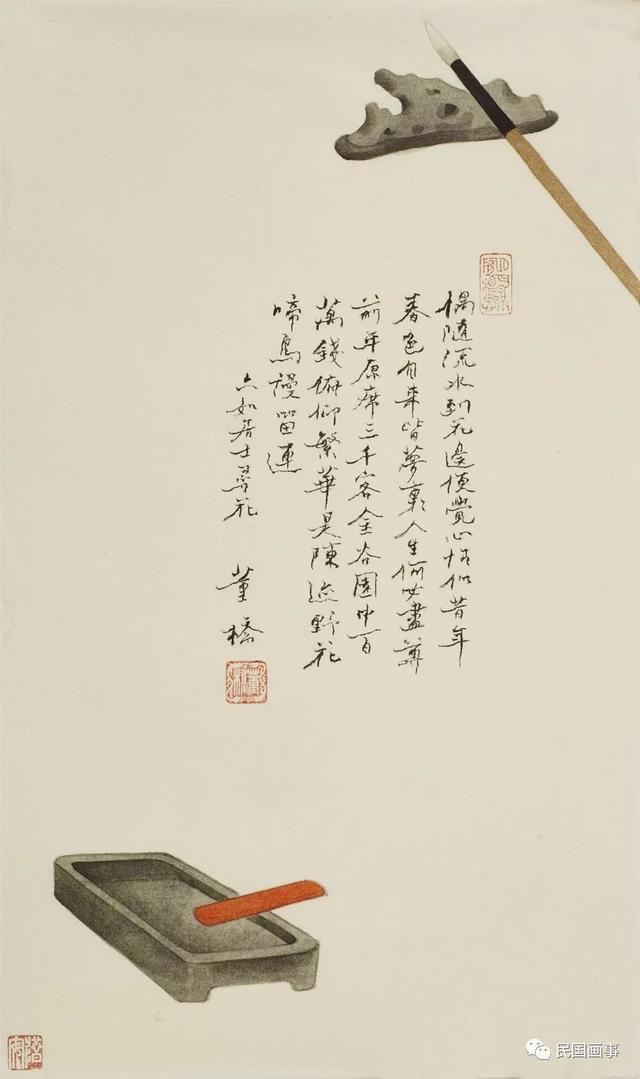 偶隨流水到花邊便覺心情似昔年
春色自來皆夢裏人生何必盡尊
前平原席三千客金谷園中百
萬錢俯仰繁華是陳迹野花
啼鳥謾留連
六如居士尋花 董橋
民国画事